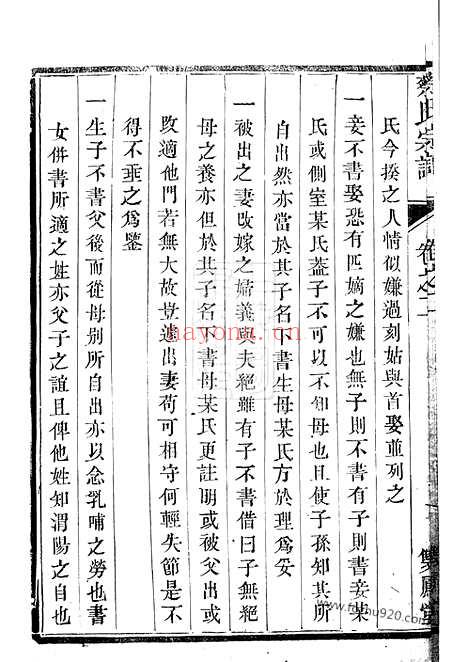 氏宗譜
卷之二
雙鳳堂
氏今揆之人情似嫌過刻姑與首娶並列之
一妾不書娶恐有匹嫡之嫌也無子則不書有子則書妾某
氏或側室某氏葢子不可以不知母也且使子孫知其所
自出然亦當於其子名下書生母某氏方於理爲妥
一被出之妻改嫁之婦義與夫絕雖有子不書借曰子無絕
母之養亦但於其子名下書母某氏更註明或被出或
改適他門若無大故豈遽出妻苟可相守何輕失節是不
得不垂之爲鑒
一生子不書父後而從母别所自出亦以念乳哺之勞也書
女併書所適之姓亦父子之誼且俾他姓知渭陽之自也
nayong.com